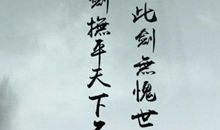 此劍無愧世
劍撫平天下